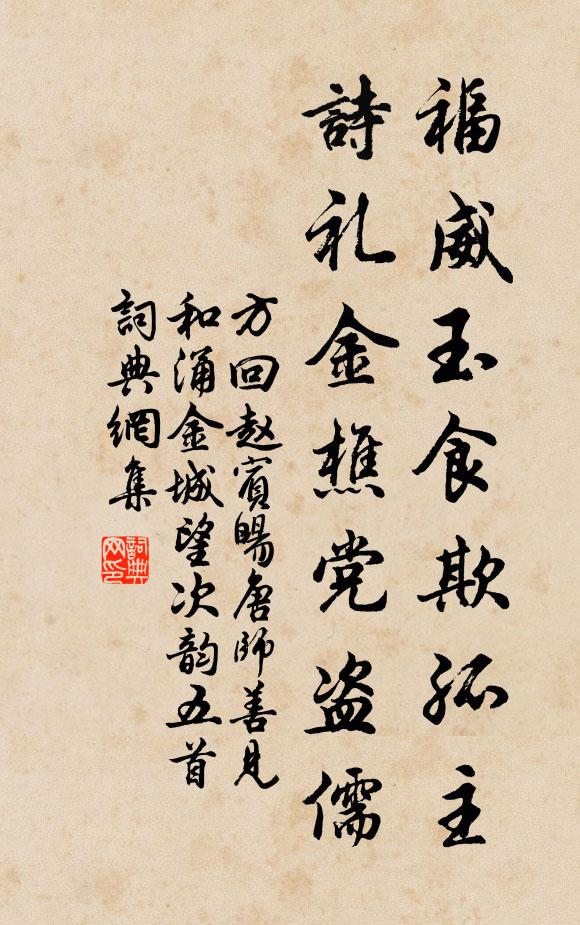 福威玉食欺孤主
詩礼金樵党盗儒
方回赵賓暘唐師善見
和涌金城望次韵五首
詞典網集
詞典
网印